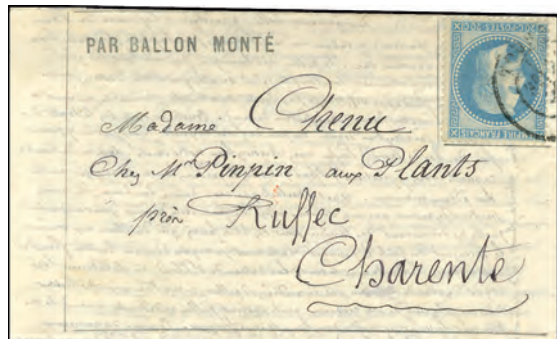 PAR BALLON MONTÉ
EMPIRE FRANÇAIS
Madame Chenu
Chez Mr Pinpin aux Plants
près Ruffec
Charente